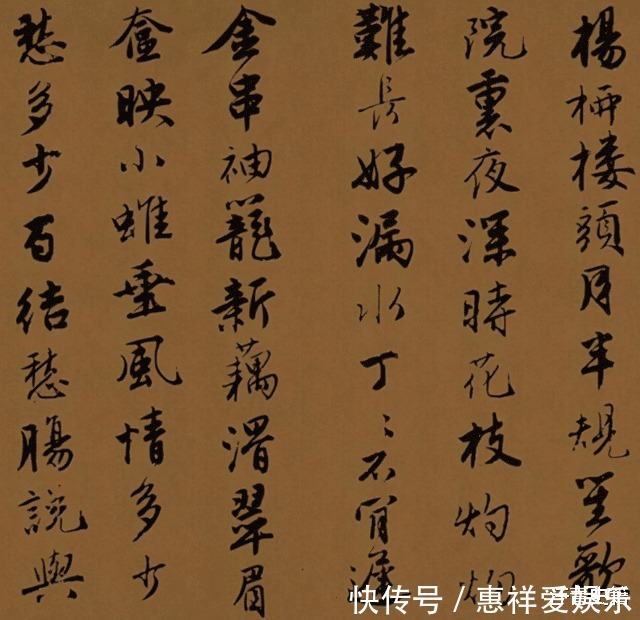 楊柳樓頭月半規笙歌
院裏夜深時花枝灼灼
難長好漏水丁〻不肯遲
金串袖籠新藕滑翠眉
奩映小蛾垂風情多少
愁多少百結愁腸說與
快传号 / 惠祥爱娱乐